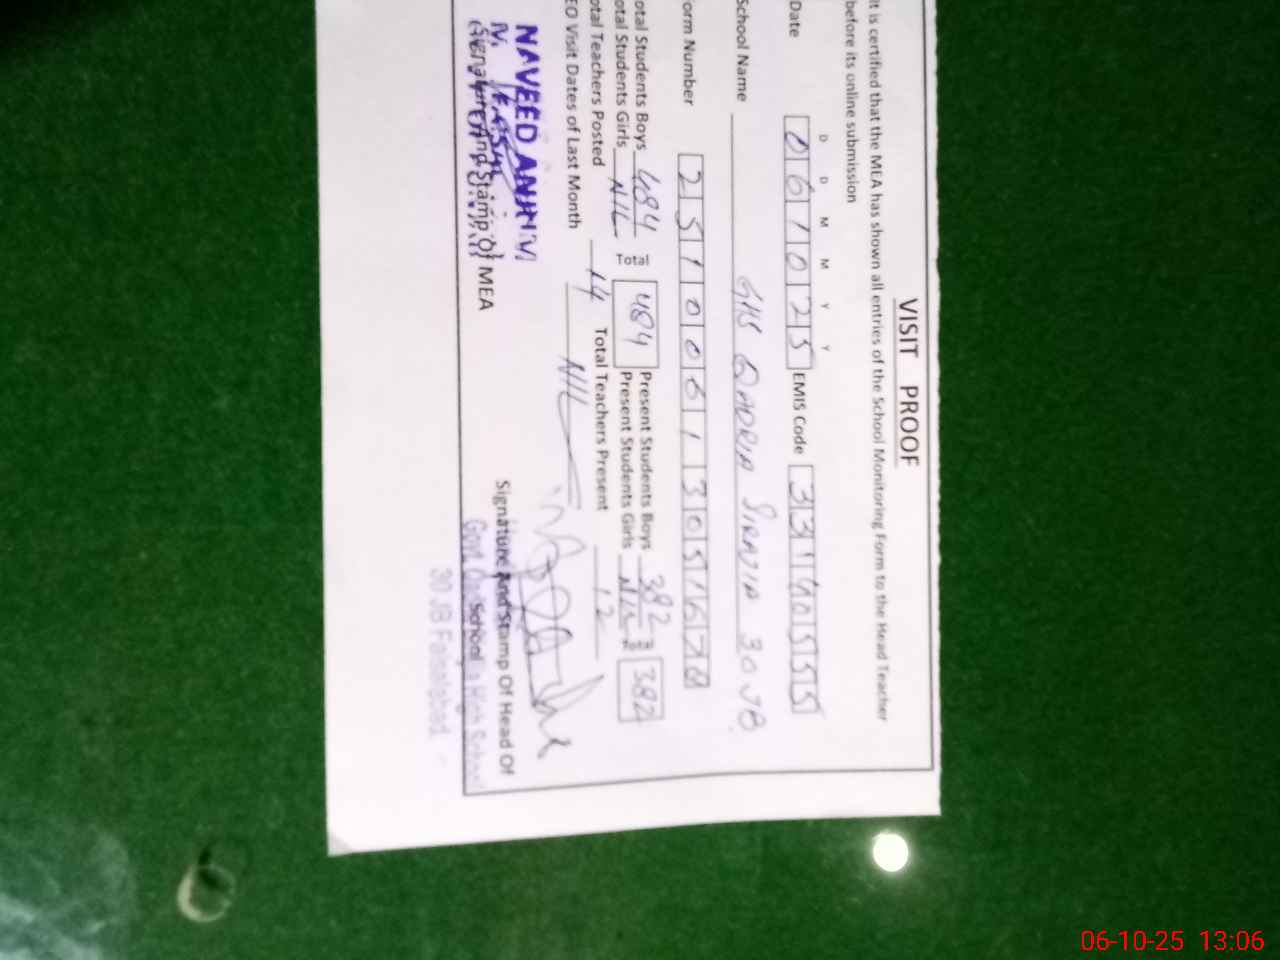 VISIT PROOF
It is certified that the MEA has shown all entries of the School Monitoring Form to the Head Teacher
before its online submission
D D M M Y Y
Date 061025 EMIS Code 33140555
School Name GHS QADRIA SIRAJIA 30 JB
orm Number 2510061305167
otal Students Boys 484 Total 484 Present Students Boys 382 382
otal Students Girls NIL Present Students Girls NIL
otal Teachers Posted 14 Total Teachers Present 12
EO Visit Dates of Last Month NIL
NAVEED ANJUM
Signature And Stamp of MEA
Signature And Stamp Of Head Of
School
Govt. High School
30 JB Faisalabad
06-10-25 13:06